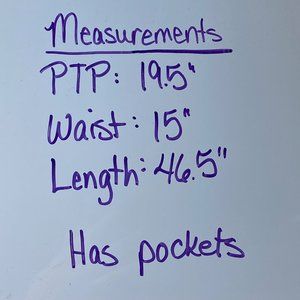 Measurements
PTP: 19.5"
Waist: 15"
Length: 46.5"
Has pockets